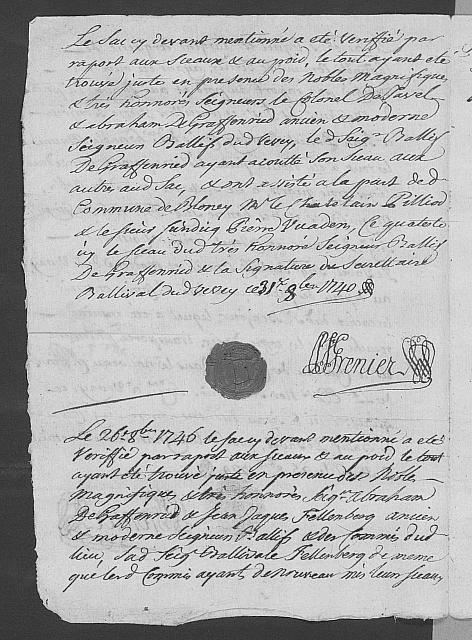 Le Sac cy devant mentionné a eté Veriffié par
raport aux Sceaux & au poid, le tout ayant eté
trouvé juste en presence des Nobles Magnifiques
& tres honnores Seigneurs le Colonel De Tavel
& Abraham De Graffenried ancien & moderne
Seigneur Ballifs dud Vevey, le d. Seigr. Ballif
De Graffenried ayant aioutté Son Sceau aux
autre aud Sac, & ont assisté a la part de d
Commune de Bloney Mr. le Chatelain Pilliod
& le Sieur Sindiq Pierre Vuaden, Ce qu'ateste
icy le Sceau dud tres honnoré Seigneur Ballif
De Graffenried & la Signature du Secrettaire
Ballival dud Vevey ce 31e. 8bre 1740
Grenier
Le 26e. 8bre 1746 le Sac cy devant mentionné a eté
Veriffié par raport aux Sceaux & au poid le tout
ayant eté trouvé juste en presence des Nobles
Magnifiques, & tres honnores Seigrs. Abraham
De Graffenried & Jean Jaques Fellenberg ancien
& moderne Seigneur Ballifs & des Commis dud
lieu, Sad. Seigr. Ballivale Fellenberg de meme
que lesd Commis ayant de nouveau mis leurs Sceaux